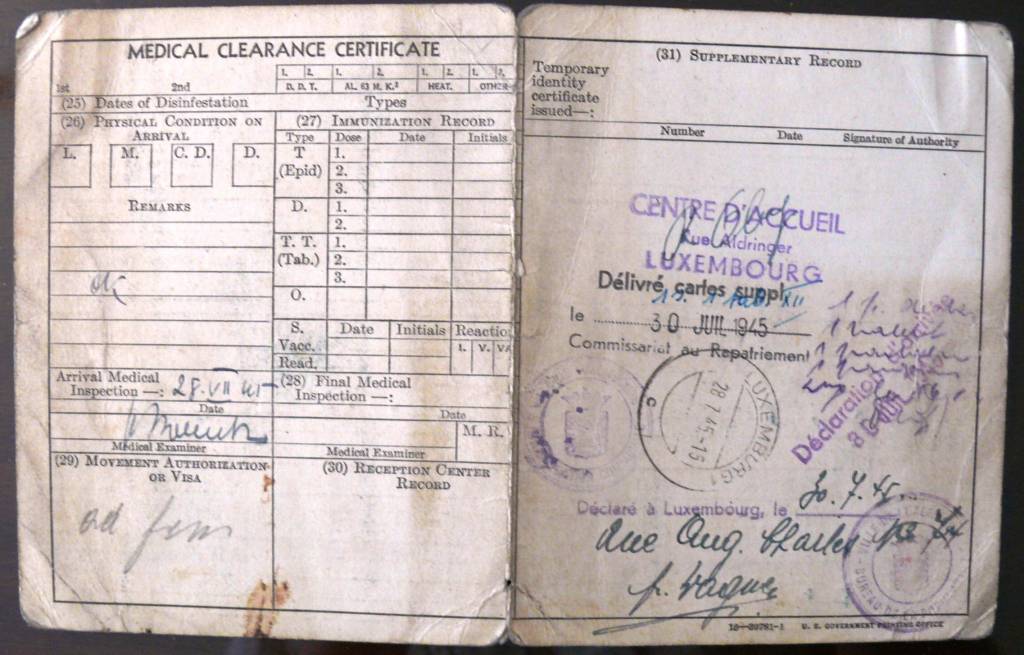 MEDICAL CLEARANCE CERTIFICATE
1. 2. 1. 2. 1. 2. 1. 2.
1st 2nd D. D. T. AL. 63 M. K.³ HEAT. OTHER
(25) Dates of Disinfestation Types
(26) PHYSICAL CONDITION ON
ARRIVAL
L. M. C. D. D.
REMARKS
ok
Arrival Medical
Inspection —: 28.VII 45
Date
Medical Examiner
(27) IMMUNIZATION RECORD
Type Dose Date Initials
T 1.
(Epid) 2.
3.
D. 1.
2.
T. T. 1.
(Tab.) 2.
3.
O.
S. Date Initials Reactio
Vacc. I. V. VA
Read.
(28) Final Medical
Inspection —:
Date
M. R.
Medical Examiner
(29) MOVEMENT AUTHORIZATION
OR VISA
(30) RECEPTION CENTER
RECORD
(31) SUPPLEMENTARY RECORD
Temporary
identity
certificate
issued—:
Number Date Signature of Authority
CENTRE D'ACCUEIL
Rue Aldringer
LUXEMBOURG
Délivré cartes suppl.
le 30 JUIL 1945
Commissariat au Rapatriement
LUXEMBOURG 1
28.7.45-15
C
Déclaration
Déclaré à Luxembourg, le 30.7.45.
rue Aug. Charles
16—39781-1 U. S. GOVERNMENT PRINTING OFFICE